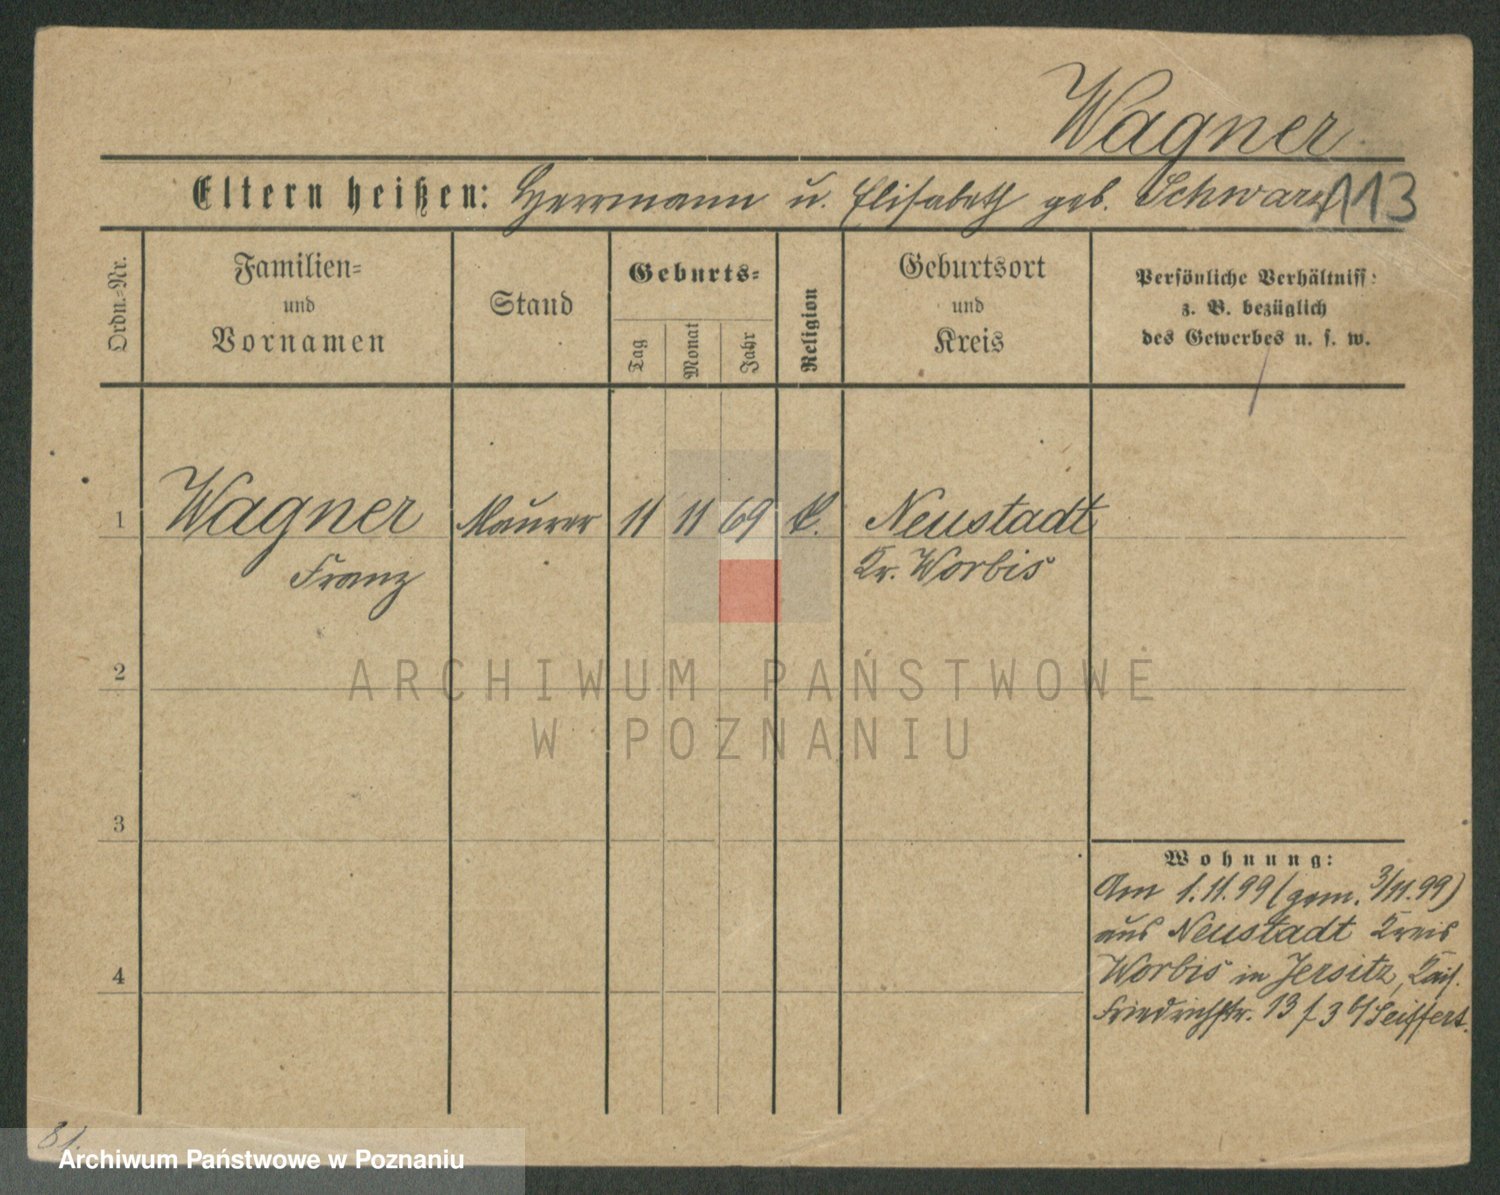 Wagner
Eltern heißen: Herrmann u. Elisabeth geb. Schwarz
113
Ordn.-Nr.
Familien-
und
Vornamen
Stand
Geburts-
Tag
Monat
Jahr
Religion
Geburtsort
und
Kreis
Persönliche Verhältniss:
z. B. bezüglich
des Gewerbes u. s. w.
1 Wagner Maurer 11 11 69 k. Neustadt
Franz Kr. Worbis
2
3
4
ARCHIWUM PAŃSTWOWE
W POZNANIU
Wohnung:
Am 1.11.99 (gem. 3/11.99)
aus Neustadt Kreis
Worbis in Jersitz, Kais.
Friedrichstr. 13 f 3 b/ Seiffert.
81.
Archiwum Państwowe w Poznaniu